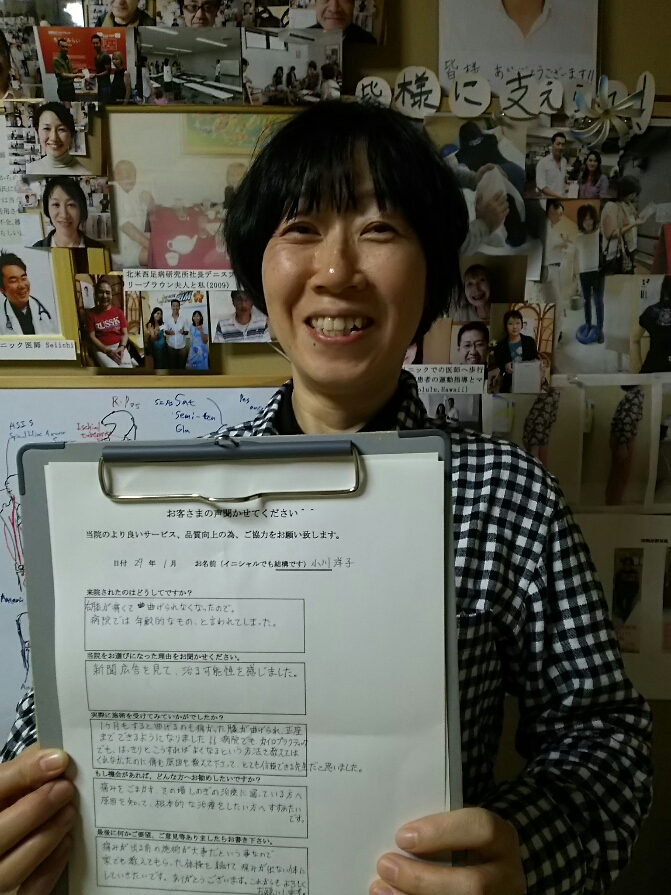 皆様 ありがとうございます!!
皆様に支えられて!
北米西足病研究所社長デニスブ
リーブラウン夫人と私(2009)
ニック医師 Seiichi
ニックでの医師へ歩行
患者の運動指導とマ
olulu,Hawaii)
R-Pos
Sat
Semi-ten
Gla
お客さまの声聞かせてください
当院のより良いサービス、品質向上の為、ご協力をお願い致します。
日付 29 年 1 月 お名前(イニシャルでも結構です) 小川 洋子
来院されたのはどうしてですか?
右膝が痛くて 曲げられなくなったので。
病院では 年齢的なもの、と言われてしまった。
当院をお選びになった理由をお聞かせください。
新聞広告を見て、治る可能性を感じました。
実際に施術を受けてみていかがでしたか?
1ヶ月もすると曲げるのも痛かった膝が曲げられ、正座
までできるようになりました!! 病院でも カイロプラクティック
でも、はっきりとこうすれば良くなるという方法を教えては
くれなかったのに痛む原因を教えて下さって、とても信頼できる先生だと思いました。
もし機会があれば、どんな方へお勧めしたいですか?
痛みをごまかす、その場しのぎの治療に困っている方へ
原因を知って、根本的な治療をしたい方へすすめたい
です。
最後に何かご要望、ご意見等ありましたらお書き下さい。
痛みが出る前の施術が大事だという事なので
家でも教えてもらった体操を続けて 痛みが出ない体に
していきたいです。ありがとうございます。これからもよろしく
お願いします。